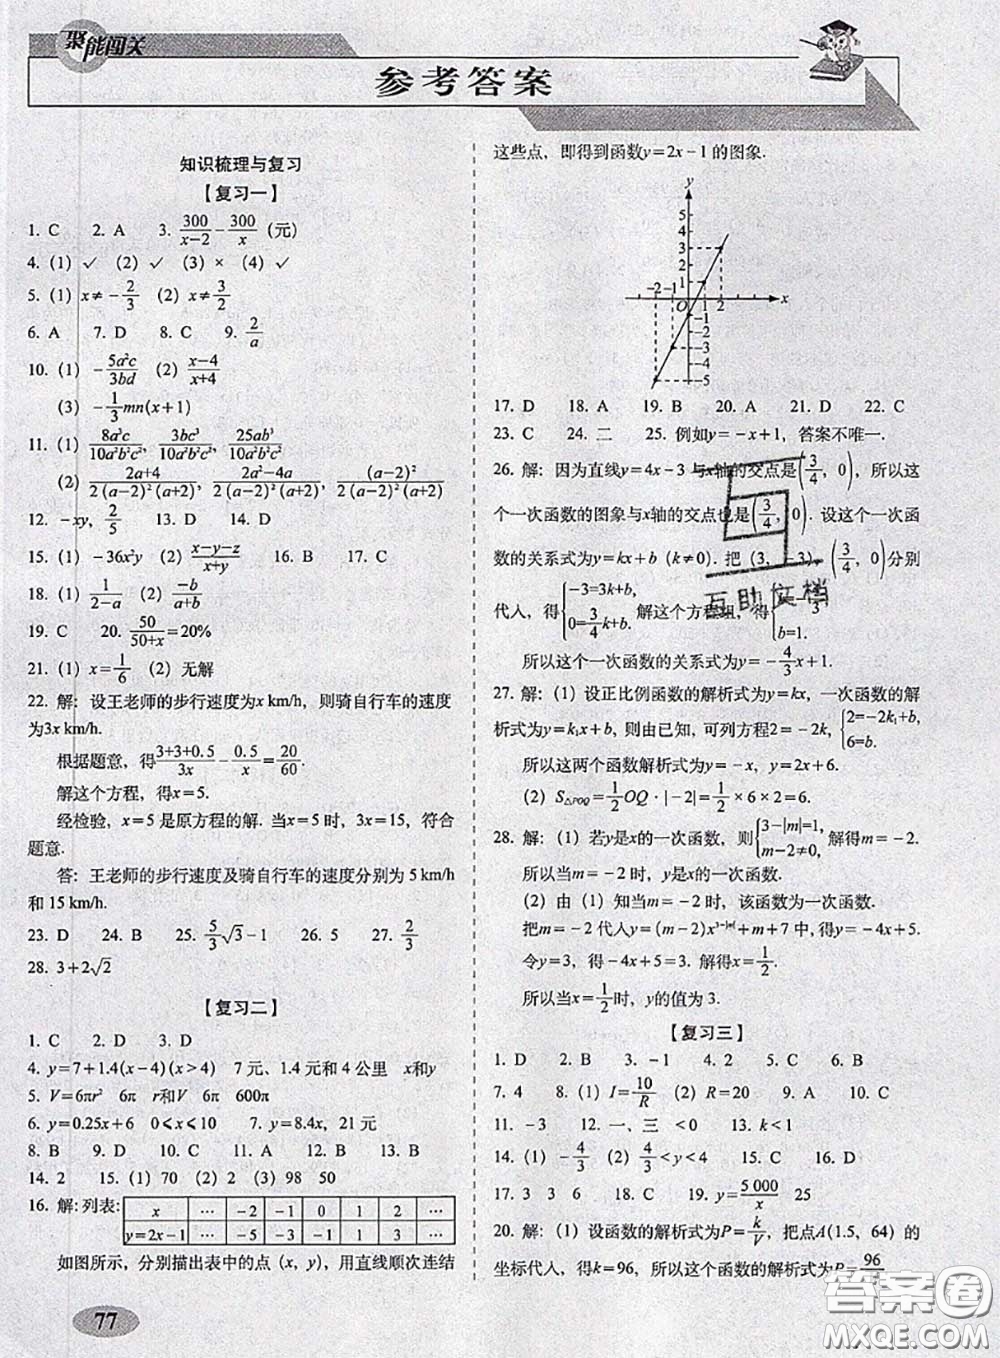 聚能闯关
参考答案
知识梳理与复习
【复习一】
1. C 2. A 3. 300/(x−2)−300/x（元）
4.（1）✓ （2）✓ （3）× （4）✓
5.（1）x≠−2/3 （2）x≠3/2
6. A 7. D 8. C 9. 2/a
10.（1）−5a²c/3bd （2）(x−4)/(x+4)
（3）−1/3mn(x+1)
11.（1）8a³c/10a²b²c²，3bc³/10a²b²c²，25ab³/10a²b²c²
（2）(2a+4)/2(a−2)²(a+2)，(2a²−4a)/2(a−2)²(a+2)，(a−2)²/2(a−2)²(a+2)
12. −xy，2/5 13. D 14. D
15.（1）−36x²y （2）(x−y−z)/(x+y) 16. B 17. C
18.（1）1/(2−a) （2）(a−b)/(a+b)
19. C 20. 50/(50+x)=20%
21.（1）x=1/6 （2）无解
22. 解：设王老师的步行速度为x km/h，则骑自行车的速度
为3x km/h.
根据题意，得(3+3+0.5)/3x−0.5/x=20/60.
解这个方程，得x=5.
经检验，x=5是原方程的解. 当x=5时，3x=15，符合
题意.
答：王老师的步行速度及骑自行车的速度分别为 5 km/h
和 15 km/h.
23. D 24. B 25. 5/3√3−1 26. 5 27. 2/3
28. 3+2√2
【复习二】
1. C 2. D 3. D
4. y=7+1.4(x−4)(x>4) 7元、1.4元和4公里 x和y
5. V=6πr² 6π r和V 6π 600π
6. y=0.25x+6 0⩽x⩽10 7. y=8.4x，21元
8. B 9. D 10. C 11. A 12. B 13. B
14. 2 15.（1）70 （2）2 （3）98 50
16. 解：列表：
x … −2 −1 0 1 2 …
y=2x−1 … −5 −3 −1 1 3 …
如图所示，分别描出表中的点（x，y），用直线顺次连结
77
这些点，即得到函数y=2x−1的图象.
y
5
4
3
2
1
−2 −1 O 1 2 x
−1
−2
−3
−4
−5
17. D 18. A 19. B 20. A 21. D 22. C
23. C 24. 二 25. 例如y=−x+1，答案不唯一.
26. 解：因为直线y=4x−3 与x轴的交点是(3/4，0)，所以这
个一次函数的图象与x轴的交点也是(3/4，0). 设这个一次函
数的关系式为y=kx+b（k≠0）. 把（3，−3），(3/4，0)分别
代入，得{−3=3k+b, 0=3/4k+b. 解这个方程组，得{k=−4/3 b=1.
所以这个一次函数的关系式为y=−4/3x+1.
27. 解：（1）设正比例函数的解析式为y=kx，一次函数的解
析式为y=k₁x+b，则由已知，可列方程2=−2k，{2=−2k₁+b, 6=b.
所以这两个函数解析式为y=−x，y=2x+6.
（2）S△POQ=1/2OQ·|−2|=1/2×6×2=6.
28. 解：（1）若y是x的一次函数，则{3−|m|=1, m−2≠0, 解得m=−2.
所以当m=−2时，y是x的一次函数.
（2）由（1）知当m=−2时，该函数为一次函数.
把m=−2代入y=(m−2)x³⁻|ᵐ|+m+7中，得y=−4x+5.
令y=3，得−4x+5=3. 解得x=1/2.
所以当x=1/2时，y的值为3.
【复习三】
1. D 2. B 3. −1 4. 2 5. C 6. B
7. 4 8.（1）I=10/R （2）R=20 9. A 10. A
11. −3 12. 一、三 <0 13. k<1
14.（1）−4/3 （2）4/3<y<4 15. C 16. C
17. 3 3 6 18. C 19. y=5 000/x 25
20. 解：（1）设函数的解析式为P=k/V，把点A(1.5，64)的
坐标代入，得k=96，所以这个函数的解析式为P=96
互助文档
答案卷
MXQE.COM